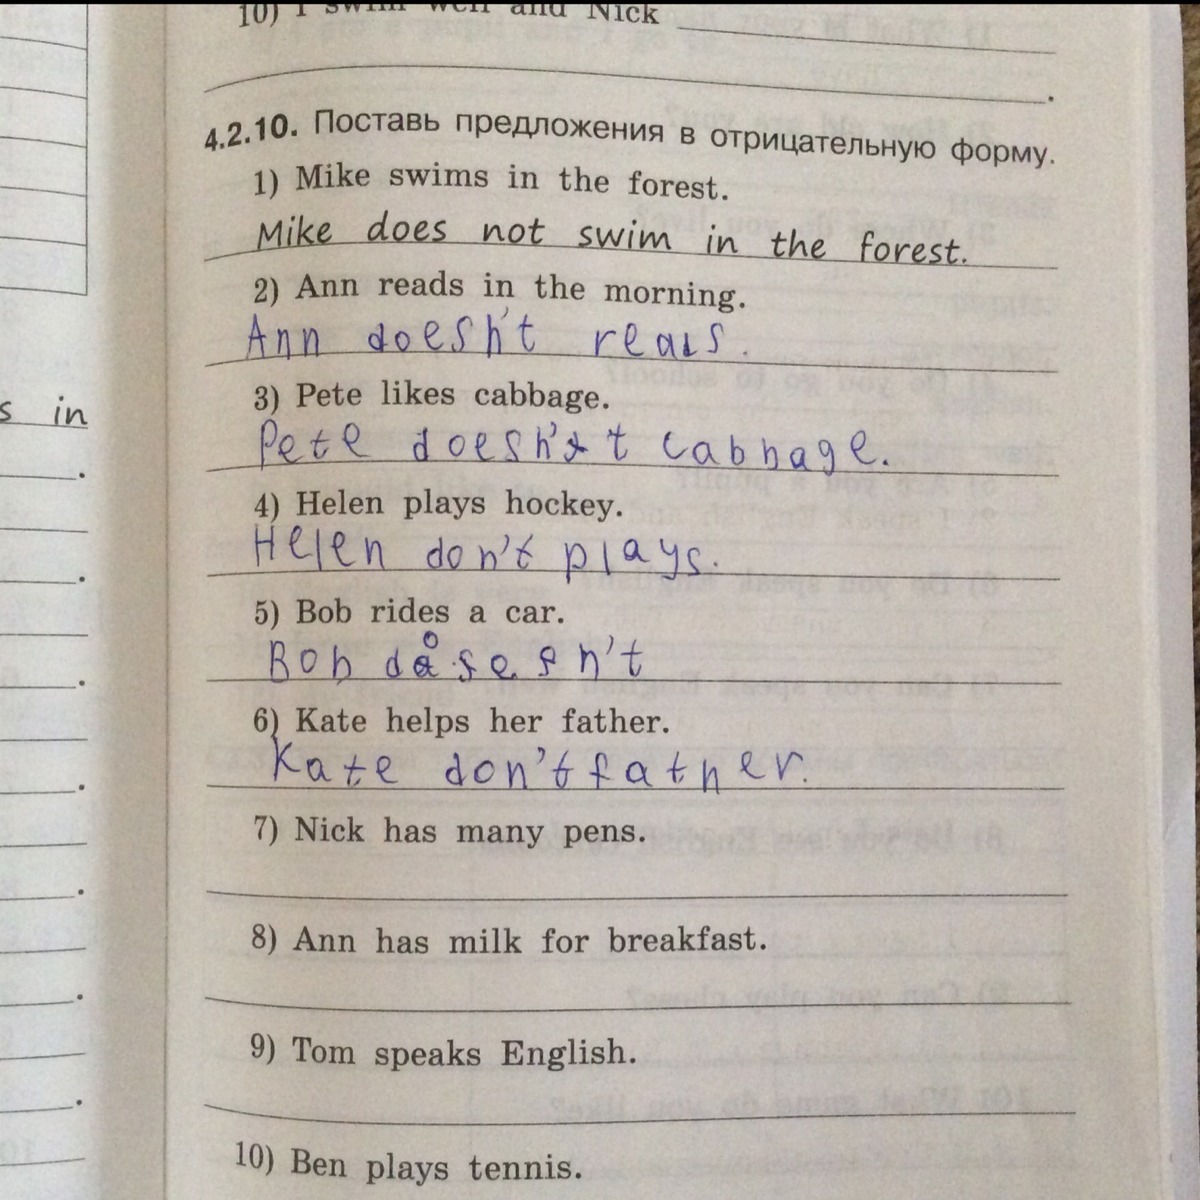 10) I swim well and Nick
4.2.10. Поставь предложения в отрицательную форму.
1) Mike swims in the forest.
Mike does not swim in the forest.
2) Ann reads in the morning.
Ann doesn't reads.
s in
3) Pete likes cabbage.
Pete doesn't cabbage.
4) Helen plays hockey.
Helen don't plays.
5) Bob rides a car.
Bob doesn't
6) Kate helps her father.
Kate don't father.
7) Nick has many pens.
8) Ann has milk for breakfast.
9) Tom speaks English.
10) Ben plays tennis.